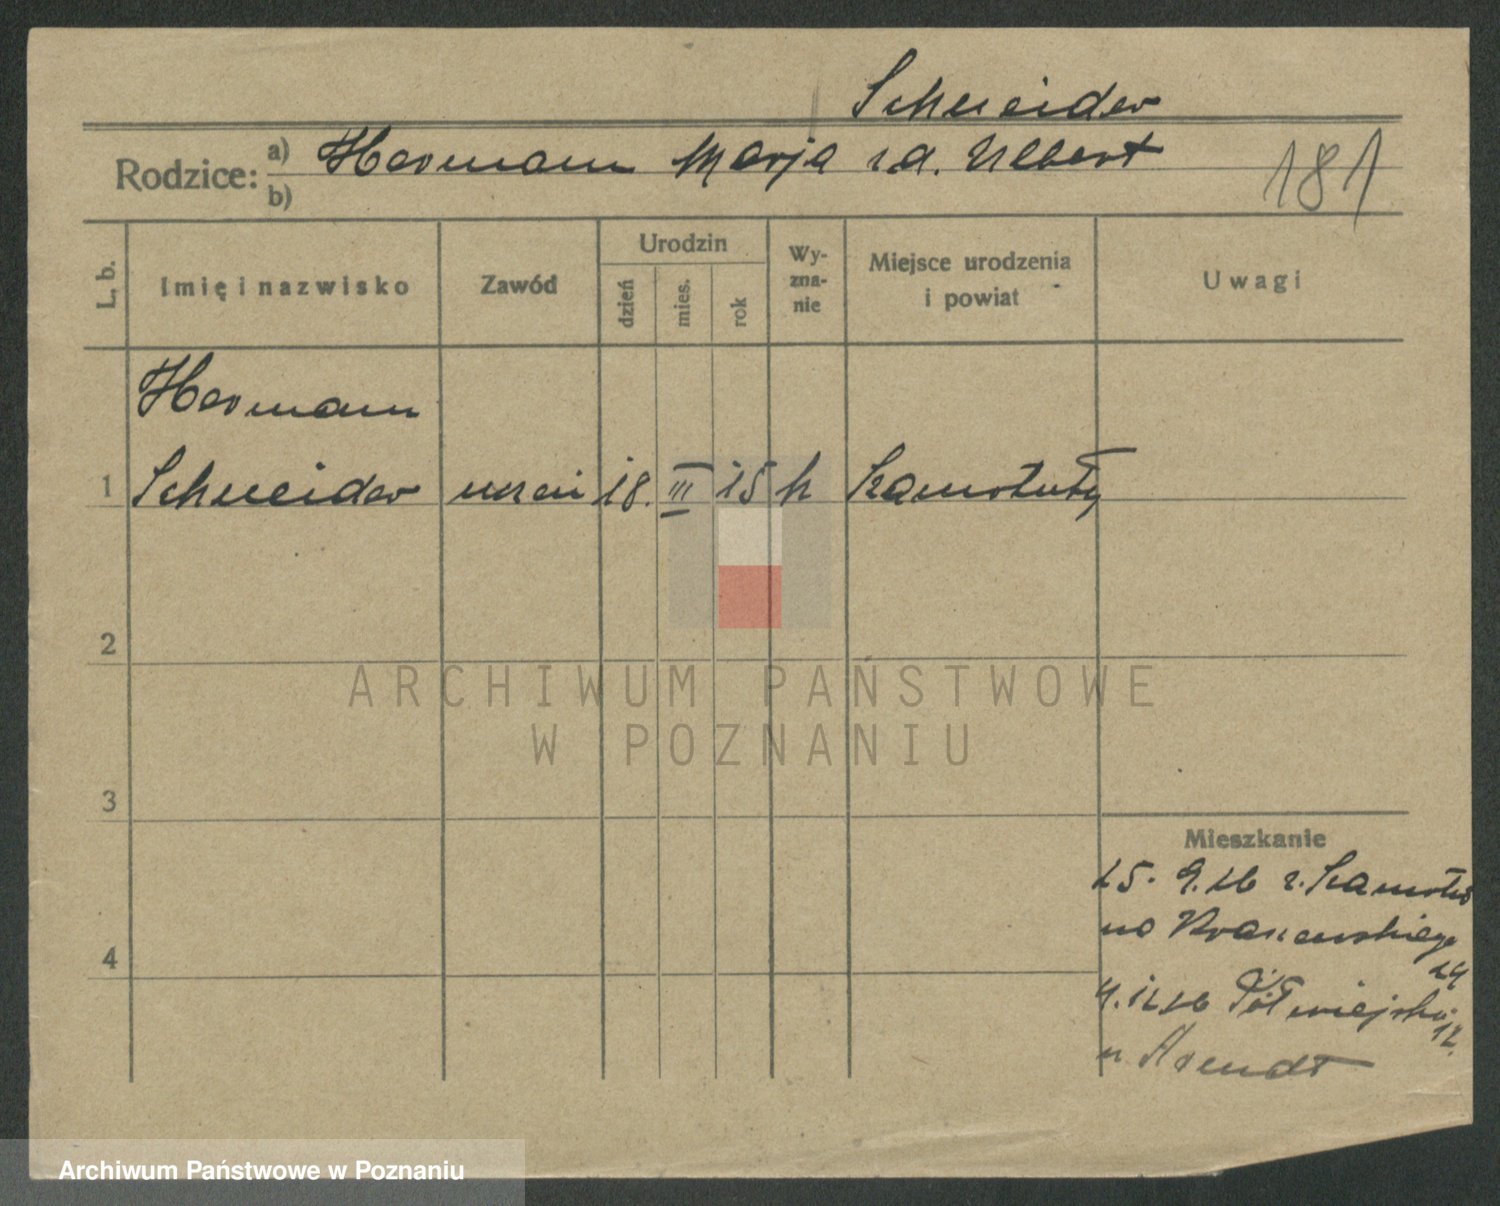 Schneider
Rodzice: a) Hermann Marja z d. Ulbert
b)
181
L. b.
Imię i nazwisko
Zawód
Urodzin
dzień
mies.
rok
Wy-
zna-
nie
Miejsce urodzenia
i powiat
Uwagi
Hermann
1 Schneider uczeń 18. III 15 k Szamotuły
2
3
4
Mieszkanie
25. 9. 26 z. Szamotuł
na Kraszewskiego
24
4. 12 26 Półwiejska
12.
u. Arendt
ARCHIWUM PAŃSTWOWE
W POZNANIU
Archiwum Państwowe w Poznaniu